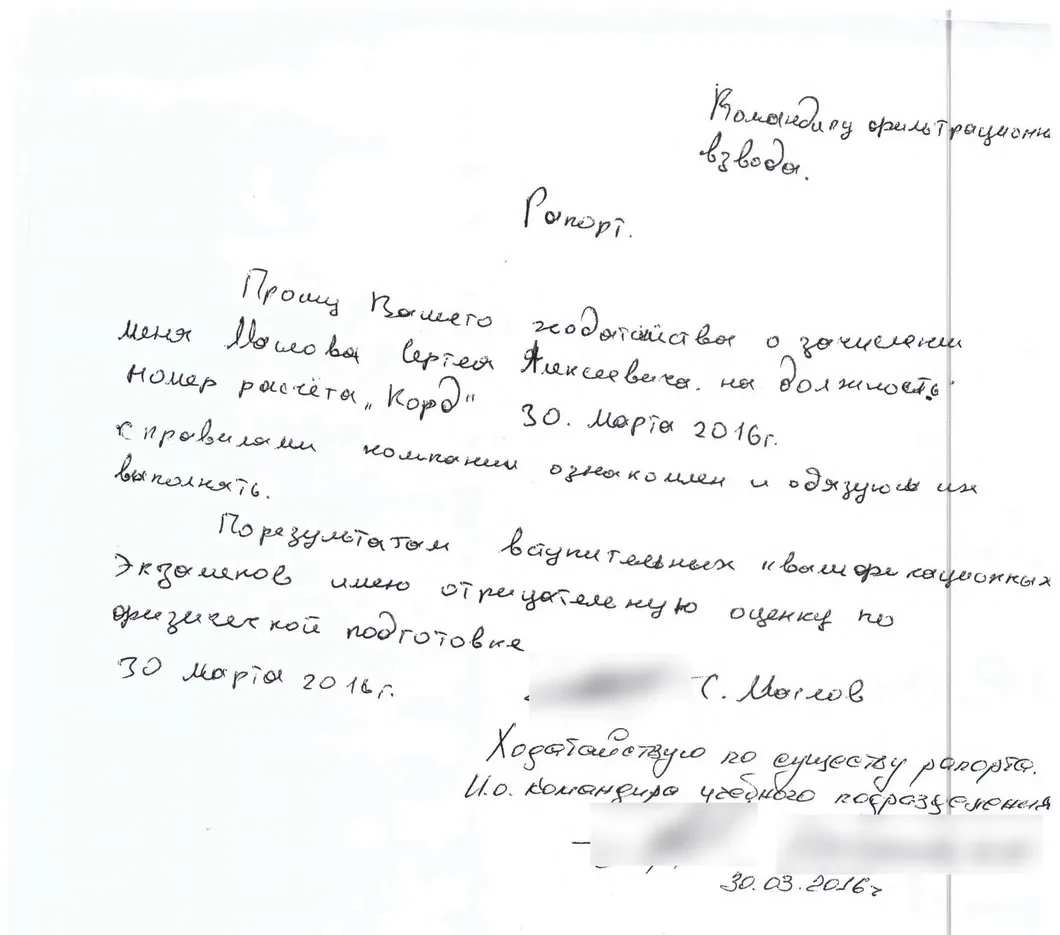 Командиру фильтрационн
взвода.
Рапорт.
Прошу Вашего ходатайства о зачислении
меня Маслова Сергея Алексеевича на должность
номер расчёта „Корд" 30. Марта 2016г.
с правилами компании ознакомлен и обязуюсь их
выполнять.
По результатам вступительных квалификационных
Экзаменов имею отрицателеную оценку по
физической подготовке
30 Марта 2016г. С. Маслов
Ходатайствую по существу рапорта.
И.о. командира учебного подразделения
30.03.2016г